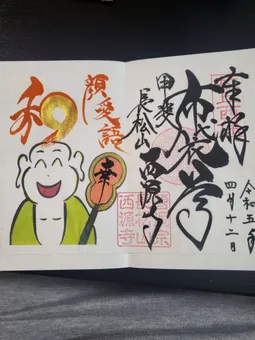 奉拝
令和五年
四月十二日
布袋尊
甲斐
長松山
西源寺
西源寺
和顔愛語
幸